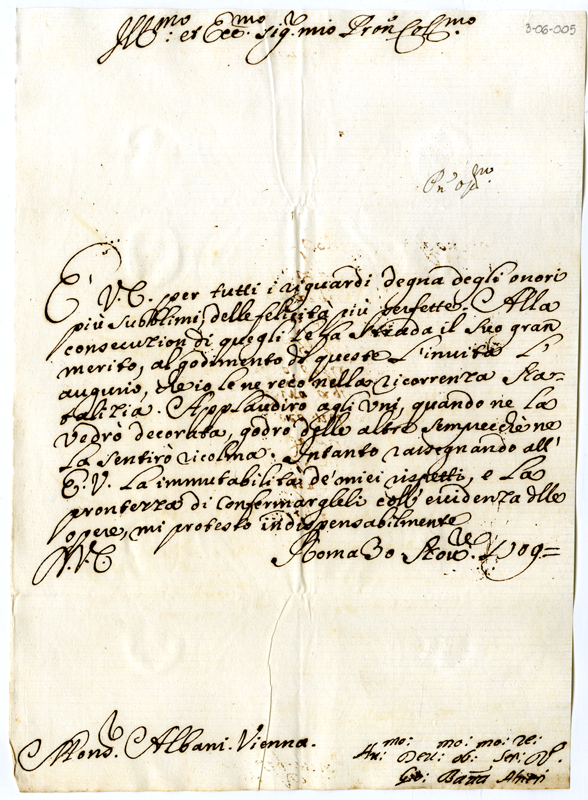 Ill.mo et Ecc.mo Sig.r mio Pron Col.mo
3-06-005
È V.E. per tutti i riguardi degna degli onori
più sublimi, delle felicità più perfette. Alla
consecuzion di quegli Le fa strada il suo gran
merito, al godimento di queste L'invita L'
augurio, che io le ne reco nella ricorrenza Na-
talizia. Applaudirò agli uni, quando ne la
vedrò decorata, godrò delle altre sempreche ne
la sentirò ricolma. Intanto rassegnando all'
E.V. La immutabilità de' miei rispetti, e La
prontezza di confermarglieli coll'evidenza dlle
opere, mi protesto indispensabilmente
V.E.
Roma 30 Nov.e 1709=
Mons.r Albani. Vienna.
Hu:mo: Dev:mo: ob:mo: Ser:re:
Gio: Batta